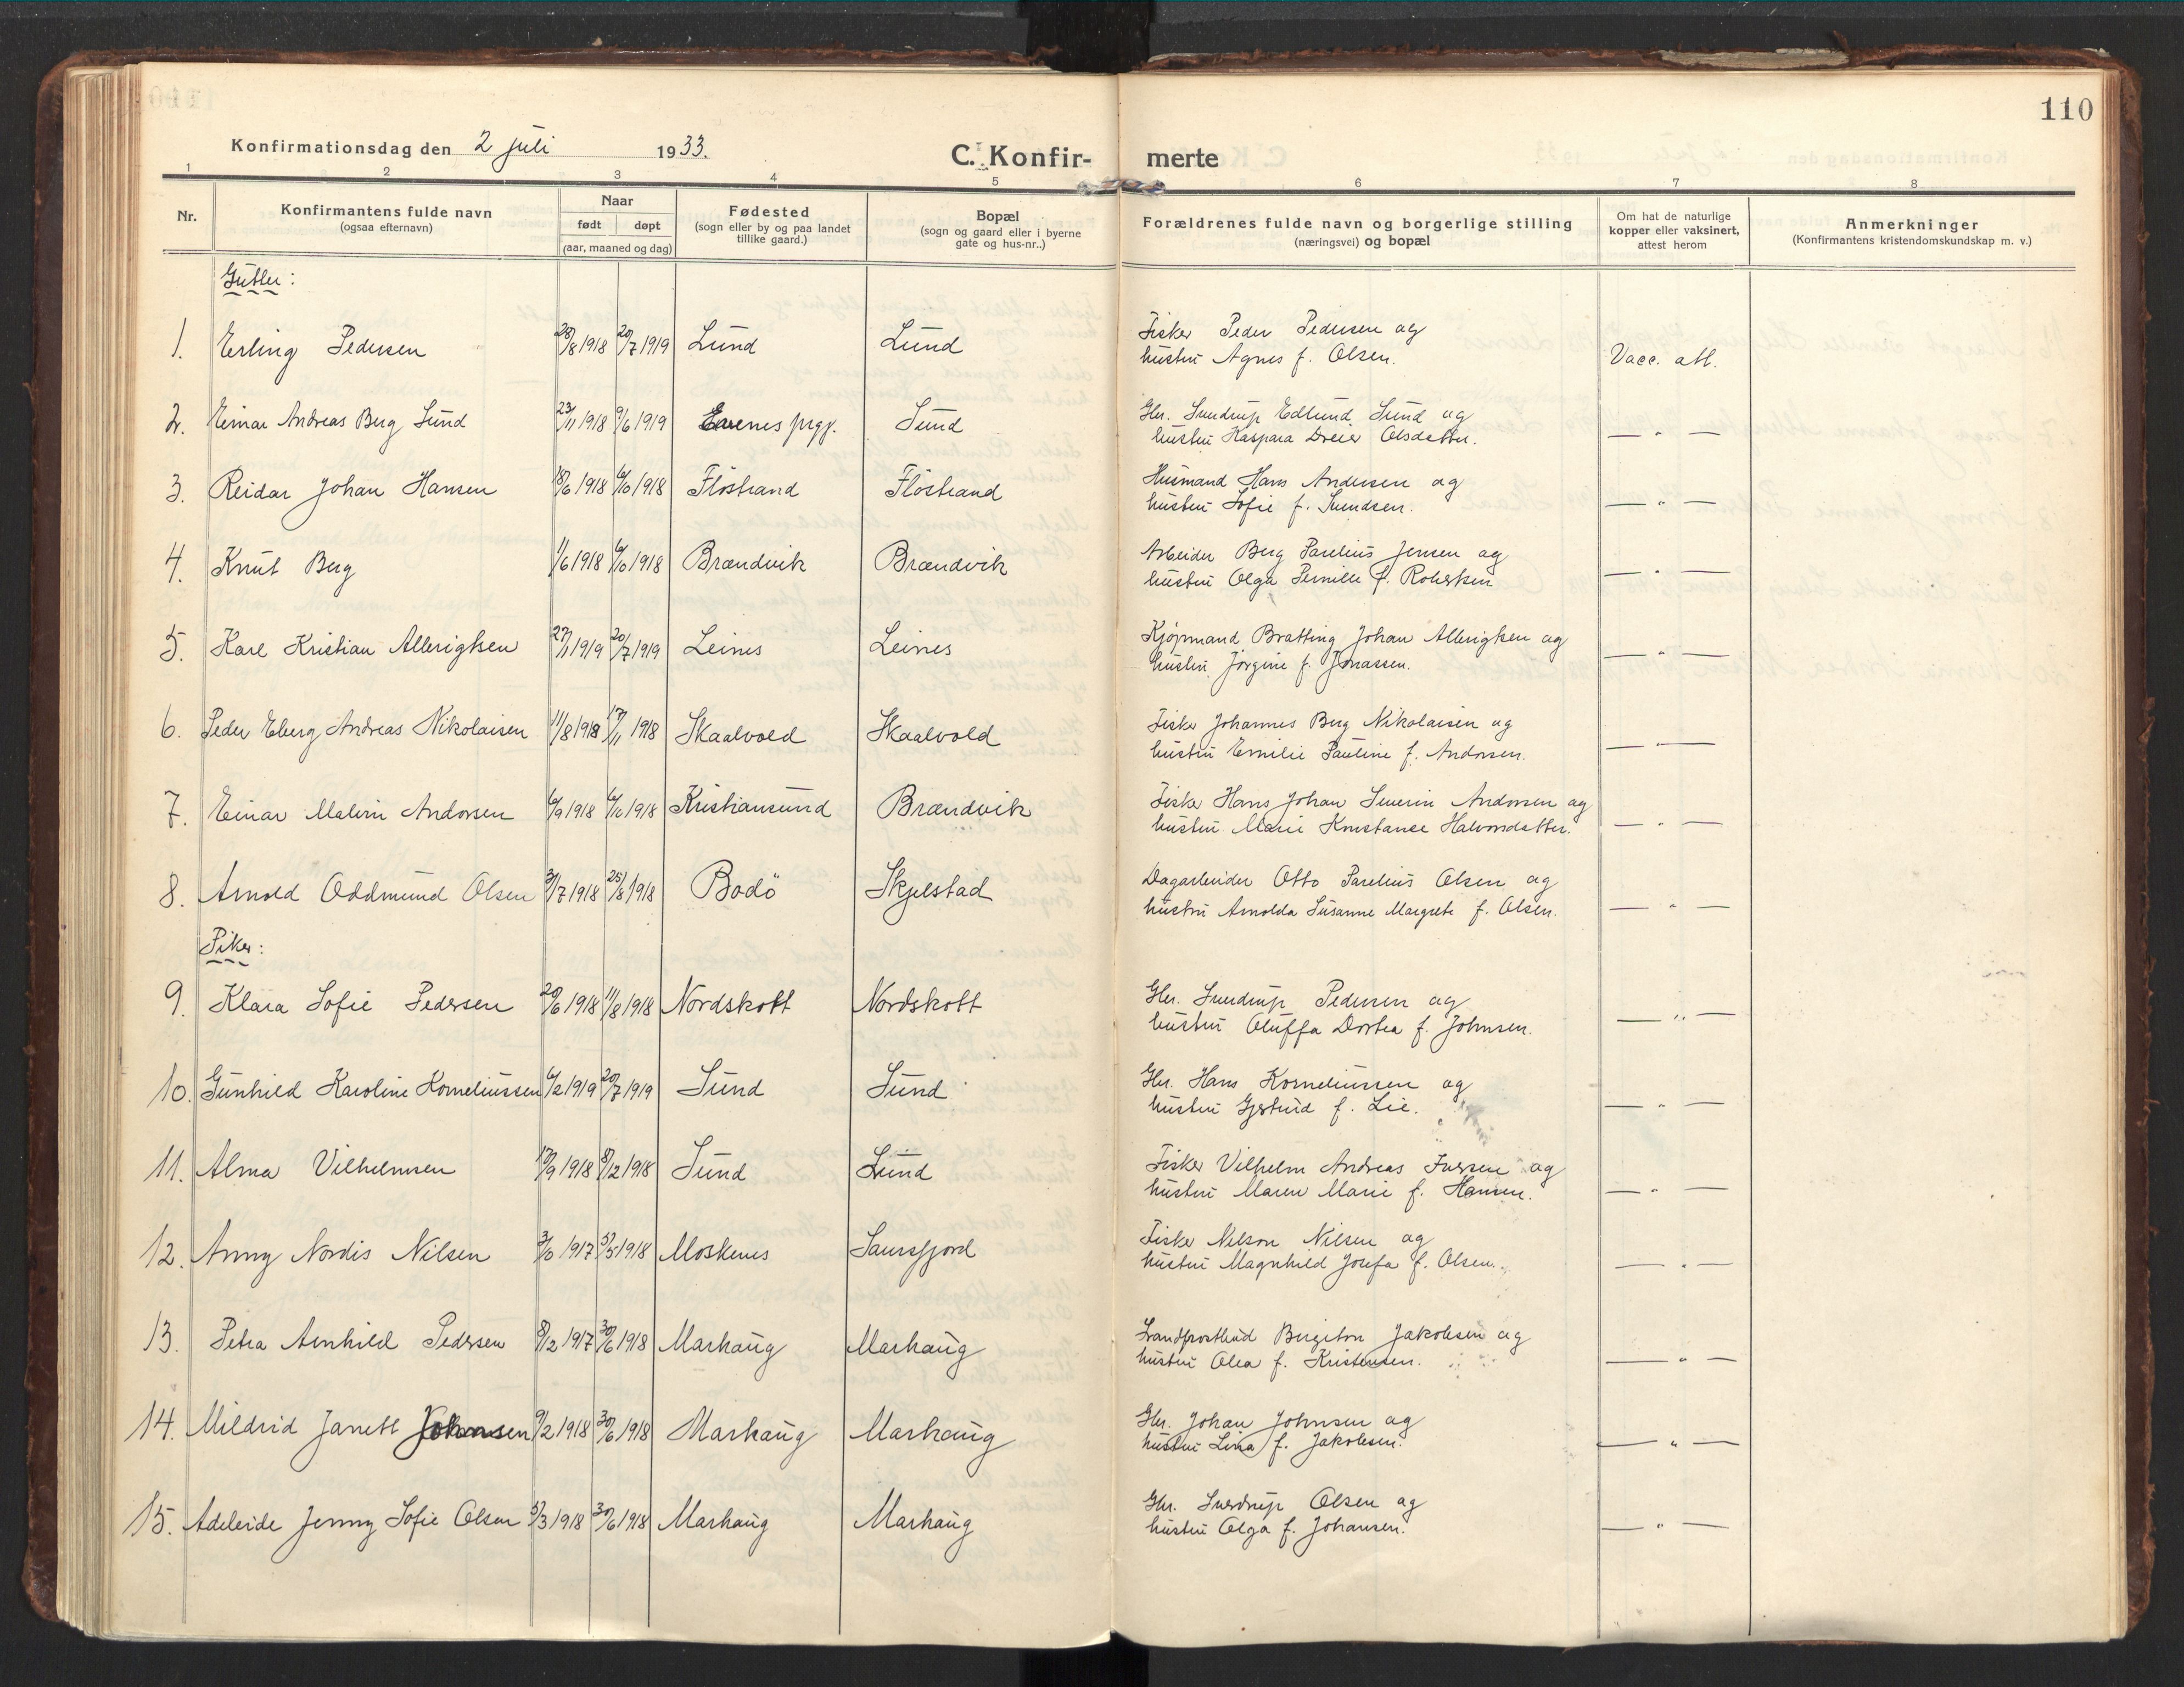 110
Konfirmationsdag den 2 juli 1933.
C. Konfir- merte
1 2 3 4 5 6 7 8
Nr.
Konfirmantens fulde navn
(ogsaa efternavn)
Naar
født døpt
(aar, maaned og dag)
Fødested
(sogn eller by og paa landet
tillike gaard.)
Bopæl
(sogn og gaard eller i byerne
gate og hus-nr..)
Forældrenes fulde navn og borgerlige stilling
(næringsvei) og bopæl
Om hat de naturlige
kopper eller vaksinert,
attest herom
Anmerkninger
(Konfirmantens kristendomskundskap m. v.)
Gutter:
Fisker Peder Pedersen og
1. Erling Pedersen 28/8 1918 20/7 1919 Lund Lund hustru Agnes f. Olsen. Vacc. att.
Gbr. Sverdrup Edlund Sund og
2. Einar Andreas Berg Sund 23/11 1918 9/6 1919 Evenes prgj. Sund hustru Kaspara Dreier Olsdatter. — " —
Husmand Hans Andersen og
3. Reidar Johan Hansen 18/6 1918 6/10 1918 Flöstrand Flöstrand hustru Sofie f. Svendsen. — " —
Arbeider Berg Parelius Jensen og
4. Knut Berg 1/6 1918 6/10 1918 Brændvik Brændvik hustru Olga Pernille f. Robertsen — " —
Kjøpmand Bratting Johan Albrigtsen og
5. Karl Kristian Albrigtsen 27/1 1919 20/7 1919 Leines Leines hustru Jörgine f. Jonassen. — " —
Fisker Johannes Berg Nikolaisen og
6. Peder Eberg Andreas Nikolaisen 11/8 1918 17/11 1918 Skaalvold Skaalvold hustru Emilie Pauline f. Andorsen. — " —
Fisker Hans Johan Severin Andorsen og
7. Einar Malvin Andorsen 6/9 1918 6/10 1918 Kristiansund Brændvik hustru Marie Konstanse Halvorsdatter. — " —
Dagarbeider Otto Parelius Olsen og
8. Arnold Oddmund Olsen 3/7 1918 25/8 1918 Bodö Skjelstad hustru Arnolda Susanne Margrete f. Olsen. — " —
Piker:
Gbr. Sverdrup Pedersen og
9. Klara Sofie Pedersen 20/6 1918 11/8 1918 Nordskott Nordskott hustru Oluffa Dortea f. Johnsen. — " —
Gbr. Hans Korneliussen og
10. Gunhild Karoline Korneliussen 6/2 1919 20/7 1919 Sund Sund hustru Gjertrud f. Lie. — " —
Fisker Vilhelm Andreas Iversen og
11. Alma Vilhelmsen 17/9 1918 8/12 1918 Sund Lund hustru Maren Marie f. Hansen. — " —
Fisker Nelson Nilsen og
12. Anny Nordis Nilsen 1917 5/5 1918 Moskenes Saursfjord hustru Magnhild Josefa f. Olsen. — " —
Landpostbud Bergiton Jakobsen og
13. Petra Arnhild Pedersen 8/12 1917 30/6 1918 Marhaug Marhaug hustru Olea f. Kristensen. — " —
Gbr. Johan Johnsen og
14. Mildrid Janett Johnsen 9/2 1918 30/6 1918 Marhaug Marhaug hustru Lina f. Jakobsen. — " —
Gbr. Sverdrup Olsen og
15. Adeleide Jenny Sofie Olsen 5/3 1918 30/6 1918 Marhaug Marhaug hustru Olga f. Johansen. — " —